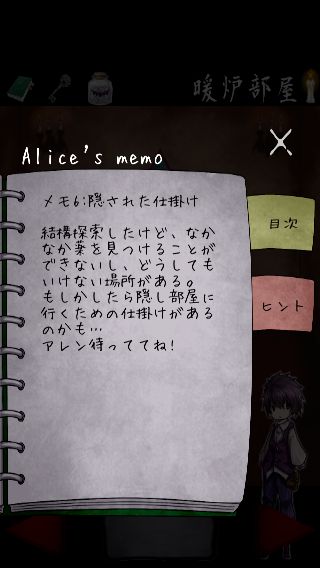 暖炉部屋
Alice's memo
メモ6:隠された仕掛け
結構探索したけど、なか
なか薬を見つけることが
できないし、どうしても
いけない場所がある。
もしかしたら隠し部屋に
行くための仕掛けがある
のかも…
アレン待っててね!
目次
ヒント